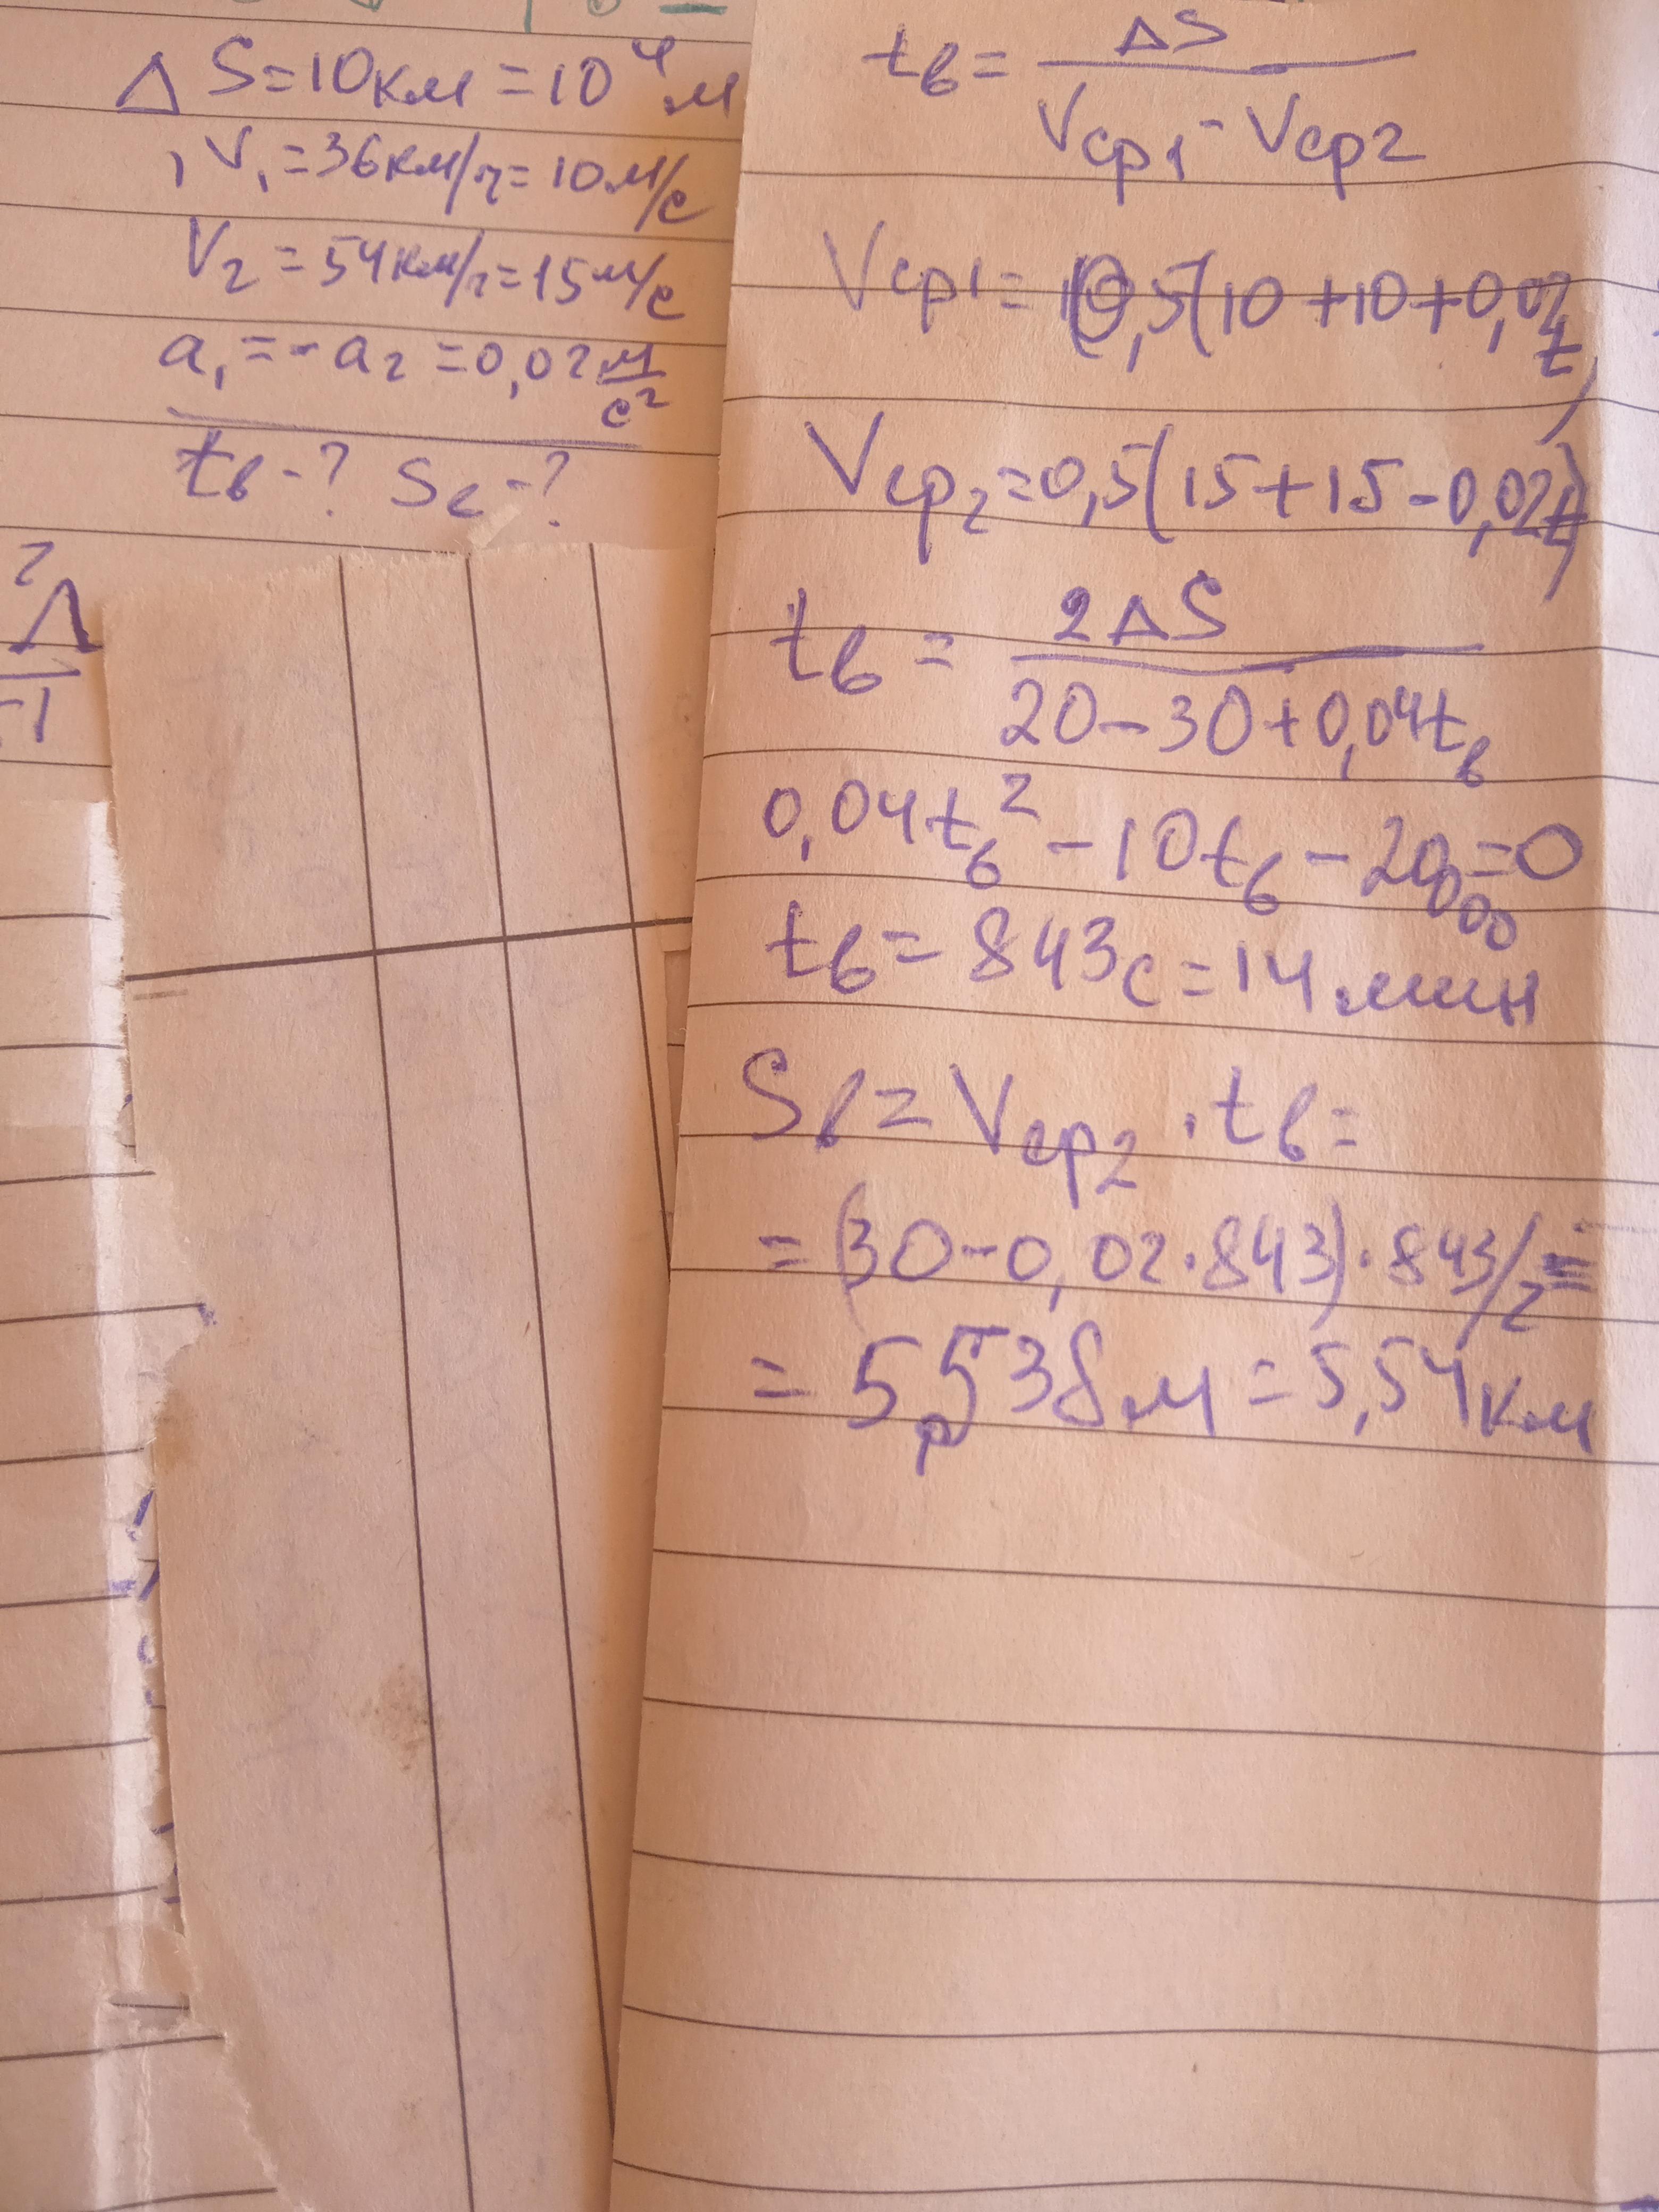 ΔS=10км=10⁴м
V₁=36км/ч=10м/с
V₂=54км/ч=15м/с
a₁=-a₂=0,02м/с²
tв-? Sв-?
tв=ΔS/(Vср1-Vср2)
Vср1=0,5(10+10+0,02t)
Vср2=0,5(15+15-0,02t)
tв=2ΔS/(20-30+0,04tв)
0,04tв²-10tв-20000=0
tв=843с=14мин
Sв=Vср2·tв=
=(30-0,02·843)·843/2=
=5538м=5,54км